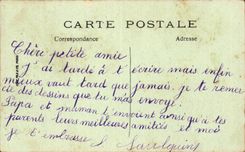 CARTE POSTALE
Correspondance Adresse
Chère petite amie
J'ai tardé à t'écrire mais enfin
mieux vaut tard que jamais. je te remer
cie des dessins que tu m'as envoyé.
Papa et maman t'envoient ainsi qu'à tes
parents leurs meilleurs amitiés et moi
je t'embrasse